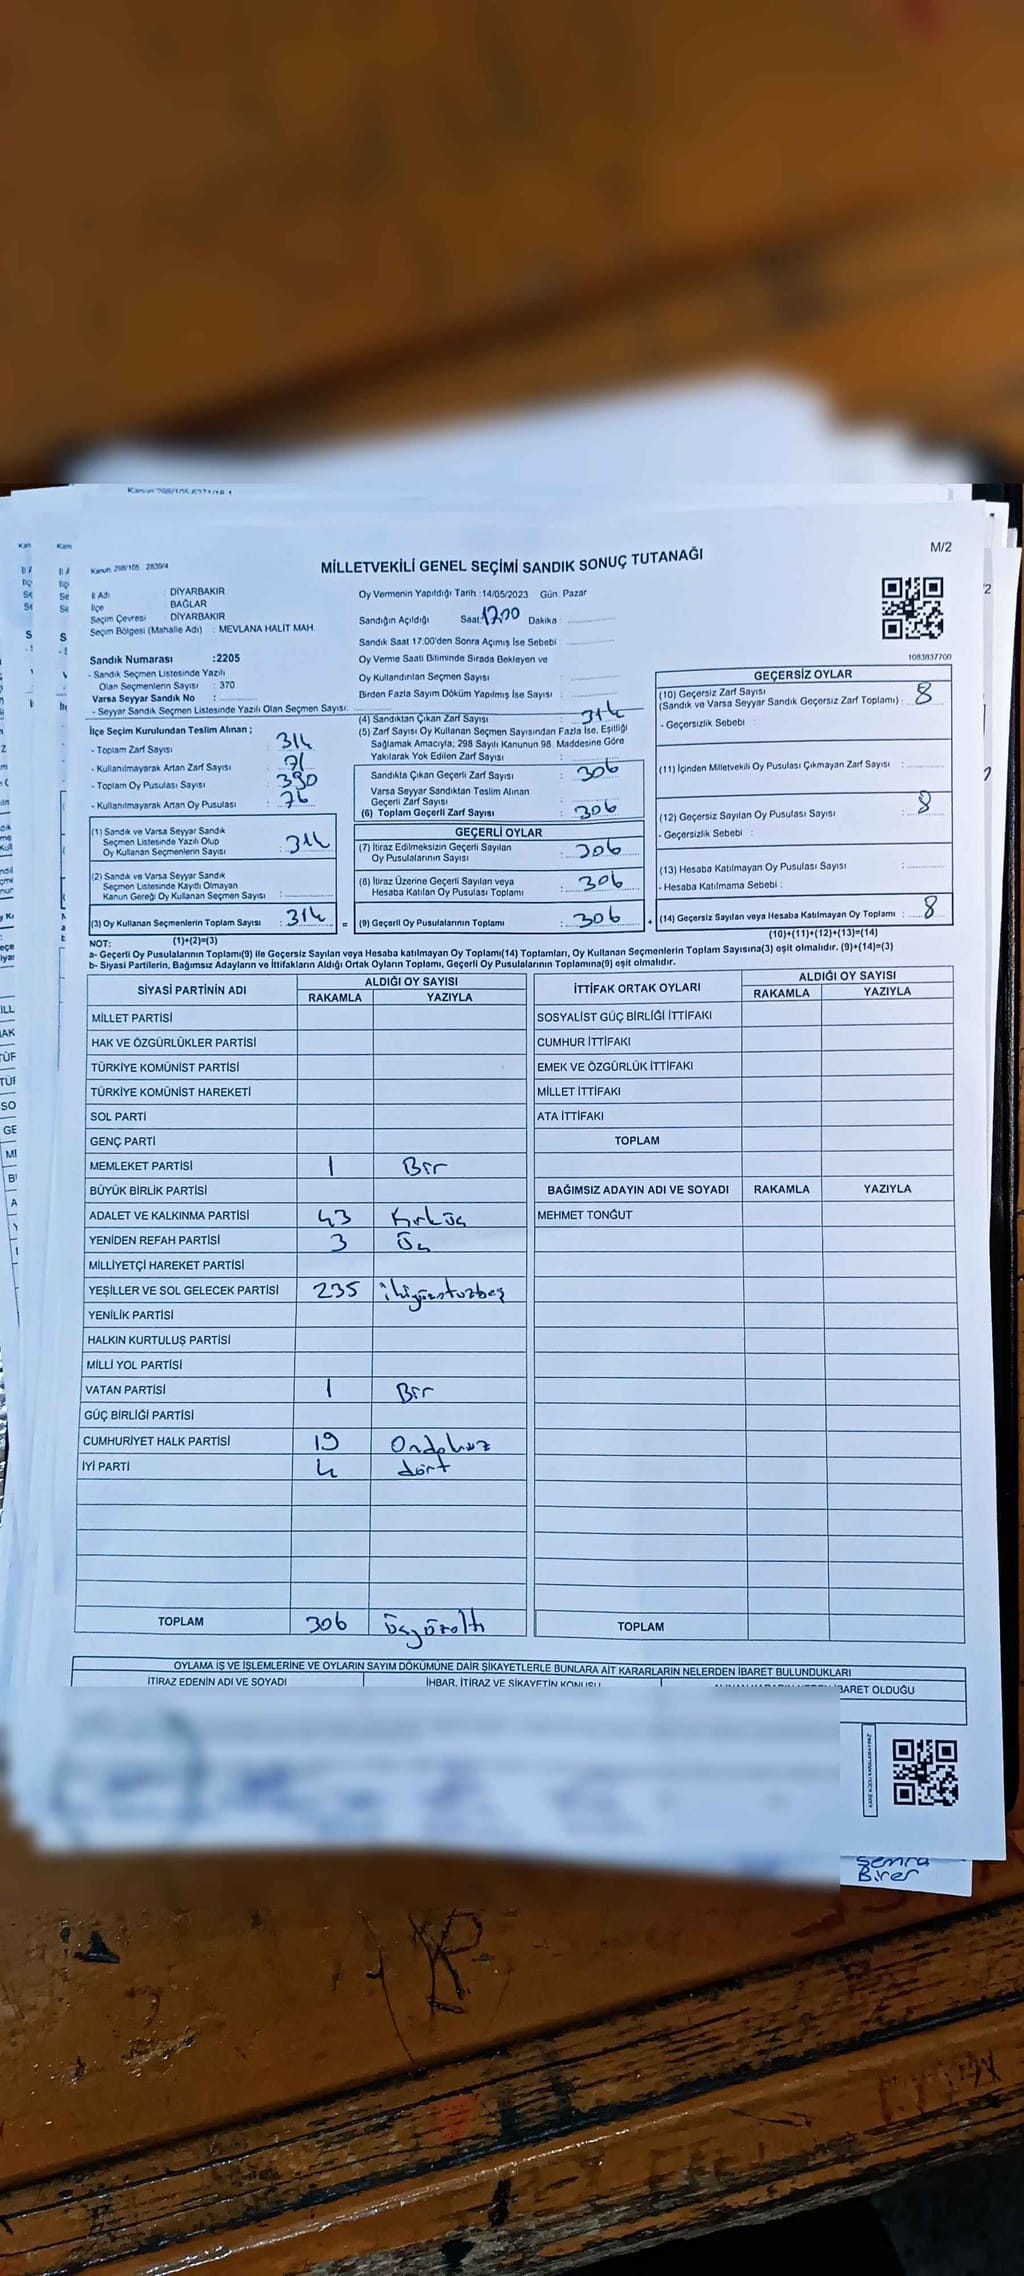 M/2
Kanun 298/105 2839/4
MİLLETVEKİLİ GENEL SEÇİMİ SANDIK SONUÇ TUTANAĞI
İl Adı : DİYARBAKIR
İlçe : BAĞLAR
Seçim Çevresi : DİYARBAKIR
Seçim Bölgesi (Mahalle Adı) : MEVLANA HALİT MAH.
Sandık Numarası :2205
- Sandık Seçmen Listesinde Yazılı
Olan Seçmenlerin Sayısı : 370
Varsa Seyyar Sandık No :
- Seyyar Sandık Seçmen Listesinde Yazılı Olan Seçmen Sayısı:
Oy Vermenin Yapıldığı Tarih :14/05/2023 Gün: Pazar
Sandığın Açıldığı Saat: 17.00 Dakika :
Sandık Saat 17.00'den Sonra Açımış İse Sebebi :
Oy Verme Saati Bitiminde Sırada Bekleyen ve
Oy Kullandırılan Seçmen Sayısı :
Birden Fazla Sayım Döküm Yapılmış İse Sayısı :
1083837700
İlçe Seçim Kurulundan Teslim Alınan ;
- Toplam Zarf Sayısı : 314
- Kullanılmayarak Artan Zarf Sayısı : 71
- Toplam Oy Pusulası Sayısı : 390
- Kullanılmayarak Artan Oy Pusulası : 76
(1) Sandık ve Varsa Seyyar Sandık
Seçmen Listesinde Yazılı Olup
Oy Kullanan Seçmenlerin Sayısı : 314
(2) Sandık ve Varsa Seyyar Sandık
Seçmen Listesinde Kayıtlı Olmayan
Kanun Gereği Oy Kullanan Seçmen Sayısı :
(3) Oy Kullanan Seçmenlerin Toplam Sayısı : 314
(4) Sandıktan Çıkan Zarf Sayısı : 314
(5) Zarf Sayısı Oy Kullanan Seçmen Sayısından Fazla İse, Eşitliği
Sağlamak Amacıyla; 298 Sayılı Kanunun 98. Maddesine Göre
Yakılarak Yok Edilen Zarf Sayısı :
Sandıkta Çıkan Geçerli Zarf Sayısı : 306
Varsa Seyyar Sandıktan Teslim Alınan
Geçerli Zarf Sayısı :
(6) Toplam Geçerli Zarf Sayısı : 306
GEÇERLİ OYLAR
(7) İtiraz Edilmeksizin Geçerli Sayılan
Oy Pusulalarının Sayısı : 306
(8) İtiraz Üzerine Geçerli Sayılan veya
Hesaba Katılan Oy Pusulası Toplamı : 306
= (9) Geçerli Oy Pusulalarının Toplamı : 306 +
GEÇERSİZ OYLAR
(10) Geçersiz Zarf Sayısı
(Sandık ve Varsa Seyyar Sandık Geçersiz Zarf Toplamı) : 8
- Geçersizlik Sebebi :
(11) İçinden Milletvekili Oy Pusulası Çıkmayan Zarf Sayısı :
(12) Geçersiz Sayılan Oy Pusulası Sayısı : 8
- Geçersizlik Sebebi :
(13) Hesaba Katılmayan Oy Pusulası Sayısı :
- Hesaba Katılmama Sebebi :
(14) Geçersiz Sayılan veya Hesaba Katılmayan Oy Toplamı : 8
NOT: (1)+(2)=(3) (10)+(11)+(12)+(13)=(14)
a- Geçerli Oy Pusulalarının Toplamı(9) ile Geçersiz Sayılan veya Hesaba katılmayan Oy Toplamı(14) Toplamları, Oy Kullanan Seçmenlerin Toplam Sayısına(3) eşit olmalıdır. (9)+(14)=(3)
b- Siyasi Partilerin, Bağımsız Adayların ve İttifakların Aldığı Ortak Oyların Toplamı, Geçerli Oy Pusulalarının Toplamına(9) eşit olmalıdır.
SİYASİ PARTİNİN ADI ALDIĞI OY SAYISI
RAKAMLA YAZIYLA
MİLLET PARTİSİ
HAK VE ÖZGÜRLÜKLER PARTİSİ
TÜRKİYE KOMÜNİST PARTİSİ
TÜRKİYE KOMÜNİST HAREKETİ
SOL PARTİ
GENÇ PARTİ
MEMLEKET PARTİSİ 1 Bir
BÜYÜK BİRLİK PARTİSİ
ADALET VE KALKINMA PARTİSİ 43 Kırküç
YENİDEN REFAH PARTİSİ 3 Üç
MİLLİYETÇİ HAREKET PARTİSİ
YEŞİLLER VE SOL GELECEK PARTİSİ 235 ikiyüzotuzbeş
YENİLİK PARTİSİ
HALKIN KURTULUŞ PARTİSİ
MİLLİ YOL PARTİSİ
VATAN PARTİSİ 1 Bir
GÜÇ BİRLİĞİ PARTİSİ
CUMHURİYET HALK PARTİSİ 19 Ondokuz
İYİ PARTİ 4 dört
TOPLAM 306 üçyüzaltı
İTTİFAK ORTAK OYLARI ALDIĞI OY SAYISI
RAKAMLA YAZIYLA
SOSYALİST GÜÇ BİRLİĞİ İTTİFAKI
CUMHUR İTTİFAKI
EMEK VE ÖZGÜRLÜK İTTİFAKI
MİLLET İTTİFAKI
ATA İTTİFAKI
TOPLAM
BAĞIMSIZ ADAYIN ADI VE SOYADI RAKAMLA YAZIYLA
MEHMET TONĞUT
TOPLAM
OYLAMA İŞ VE İŞLEMLERİNE VE OYLARIN SAYIM DÖKÜMÜNE DAİR ŞİKAYETLERLE BUNLARA AİT KARARLARIN NELERDEN İBARET BULUNDUKLARI
İTİRAZ EDENİN ADI VE SOYADI İHBAR, İTİRAZ VE ŞİKAYETİN KONUSU İBARET OLDUĞU
Semra
Birer